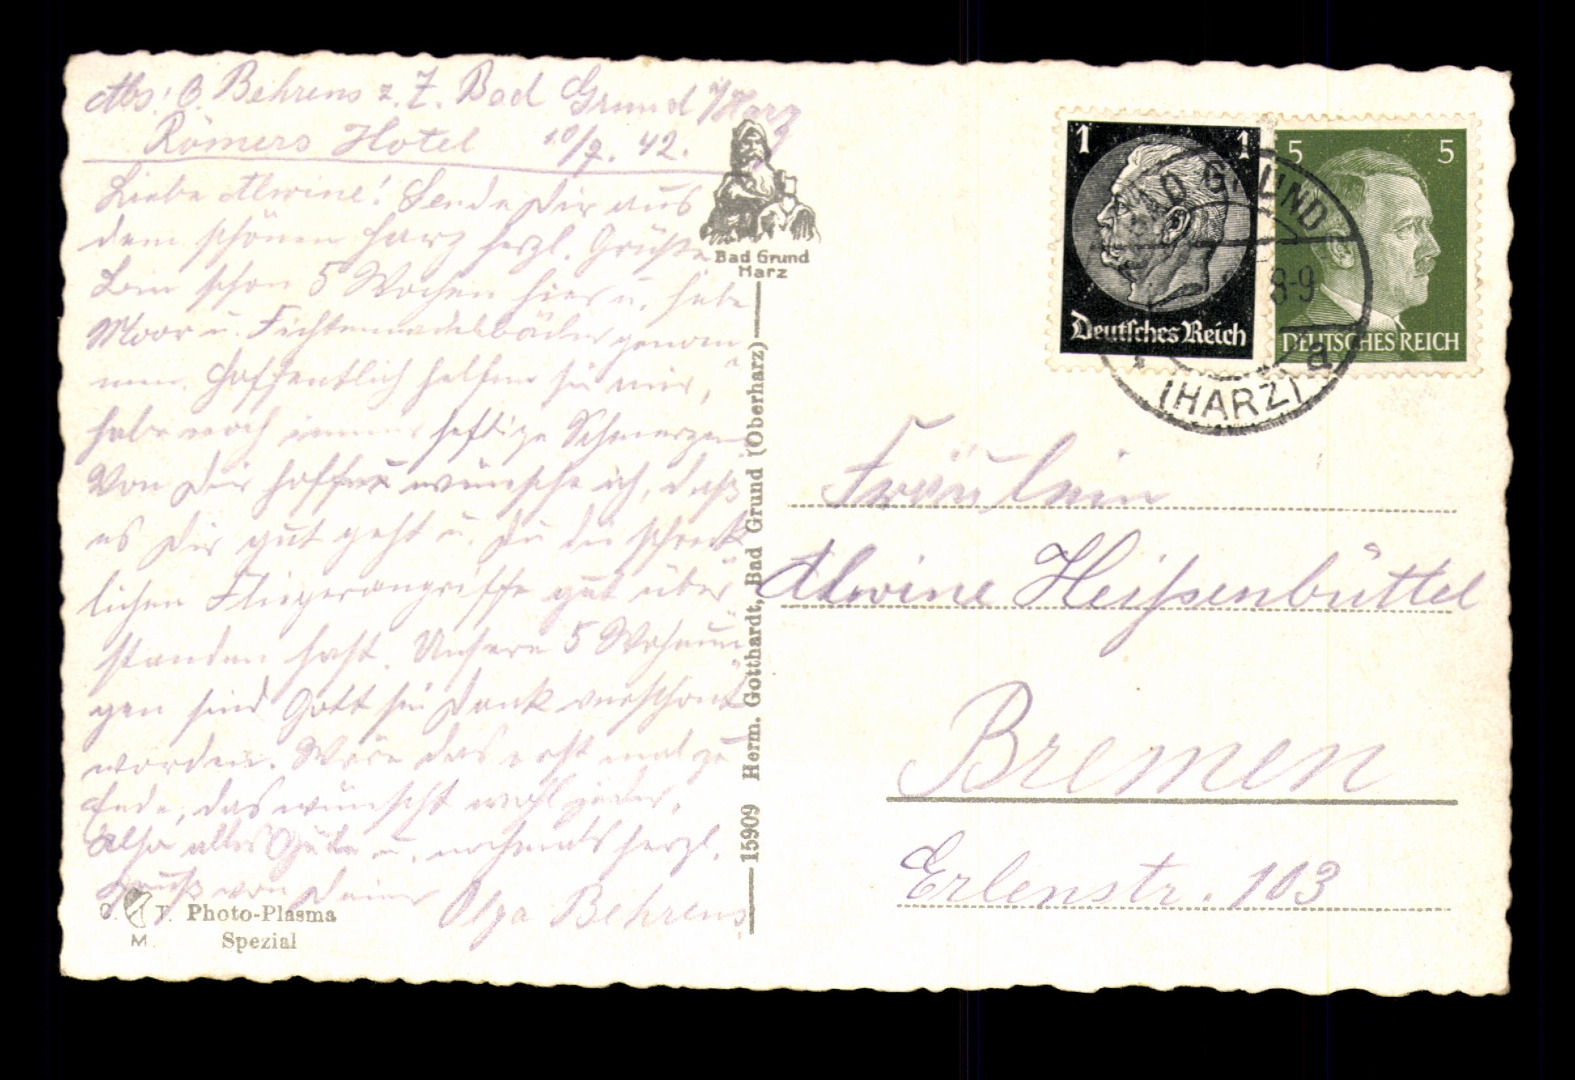 Abs: O. Behrens z. Z. Bad Grund /Harz
Römers Hotel 10/9. 42.
Liebe Alwine! Sende Dir aus
dem schönen Harz herzl. Grüße
Bin schon 5 Wochen hier u. habe
Moor u. Fichtennadelbäder genom-
men. Hoffentlich helfen sie mir,
habe noch immer heftige Schmerzen
Von Dir hoffe u wünsche ich, daß
es Dir gut geht u. Du die schreck-
lichen Fliegerangriffe gut über-
standen hast. Unsere 5 Wohnun-
gen sind Gott sei Dank verschont
worden. Wäre das erst mal zu
Ende, das wünscht wohl jeder.
Also alles Gute u. nochmals herzl.
Gruß von Deiner Olga Behrens
Bad Grund
Harz
15909 Herm. Gotthardt, Bad Grund (Oberharz)
Photo-Plasma
Spezial
M.
1 1
Deutsches Reich
5 5
DEUTSCHES REICH
BAD GRUND
8-9
a
(HARZ)
Fräulein
Alwine Heißenbüttel
Bremen
Erlenstr. 103